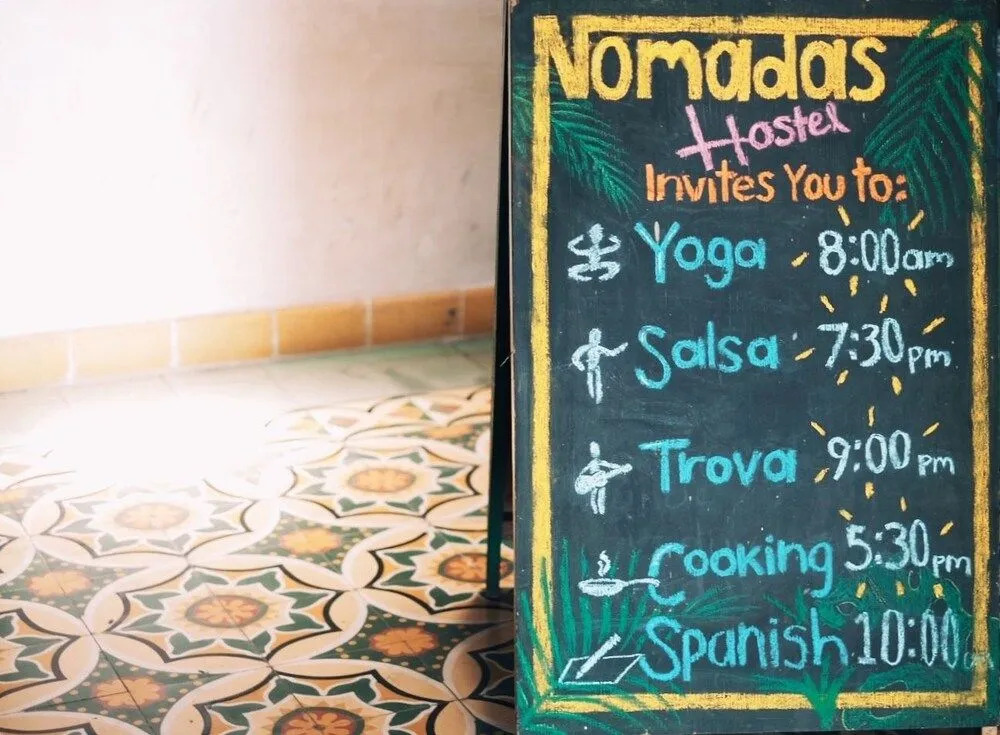 Nomadas
Hostel
Invites You to:
Yoga 8:00am
Salsa 7:30pm
Trova 9:00pm
Cooking 5:30pm
Spanish 10:00